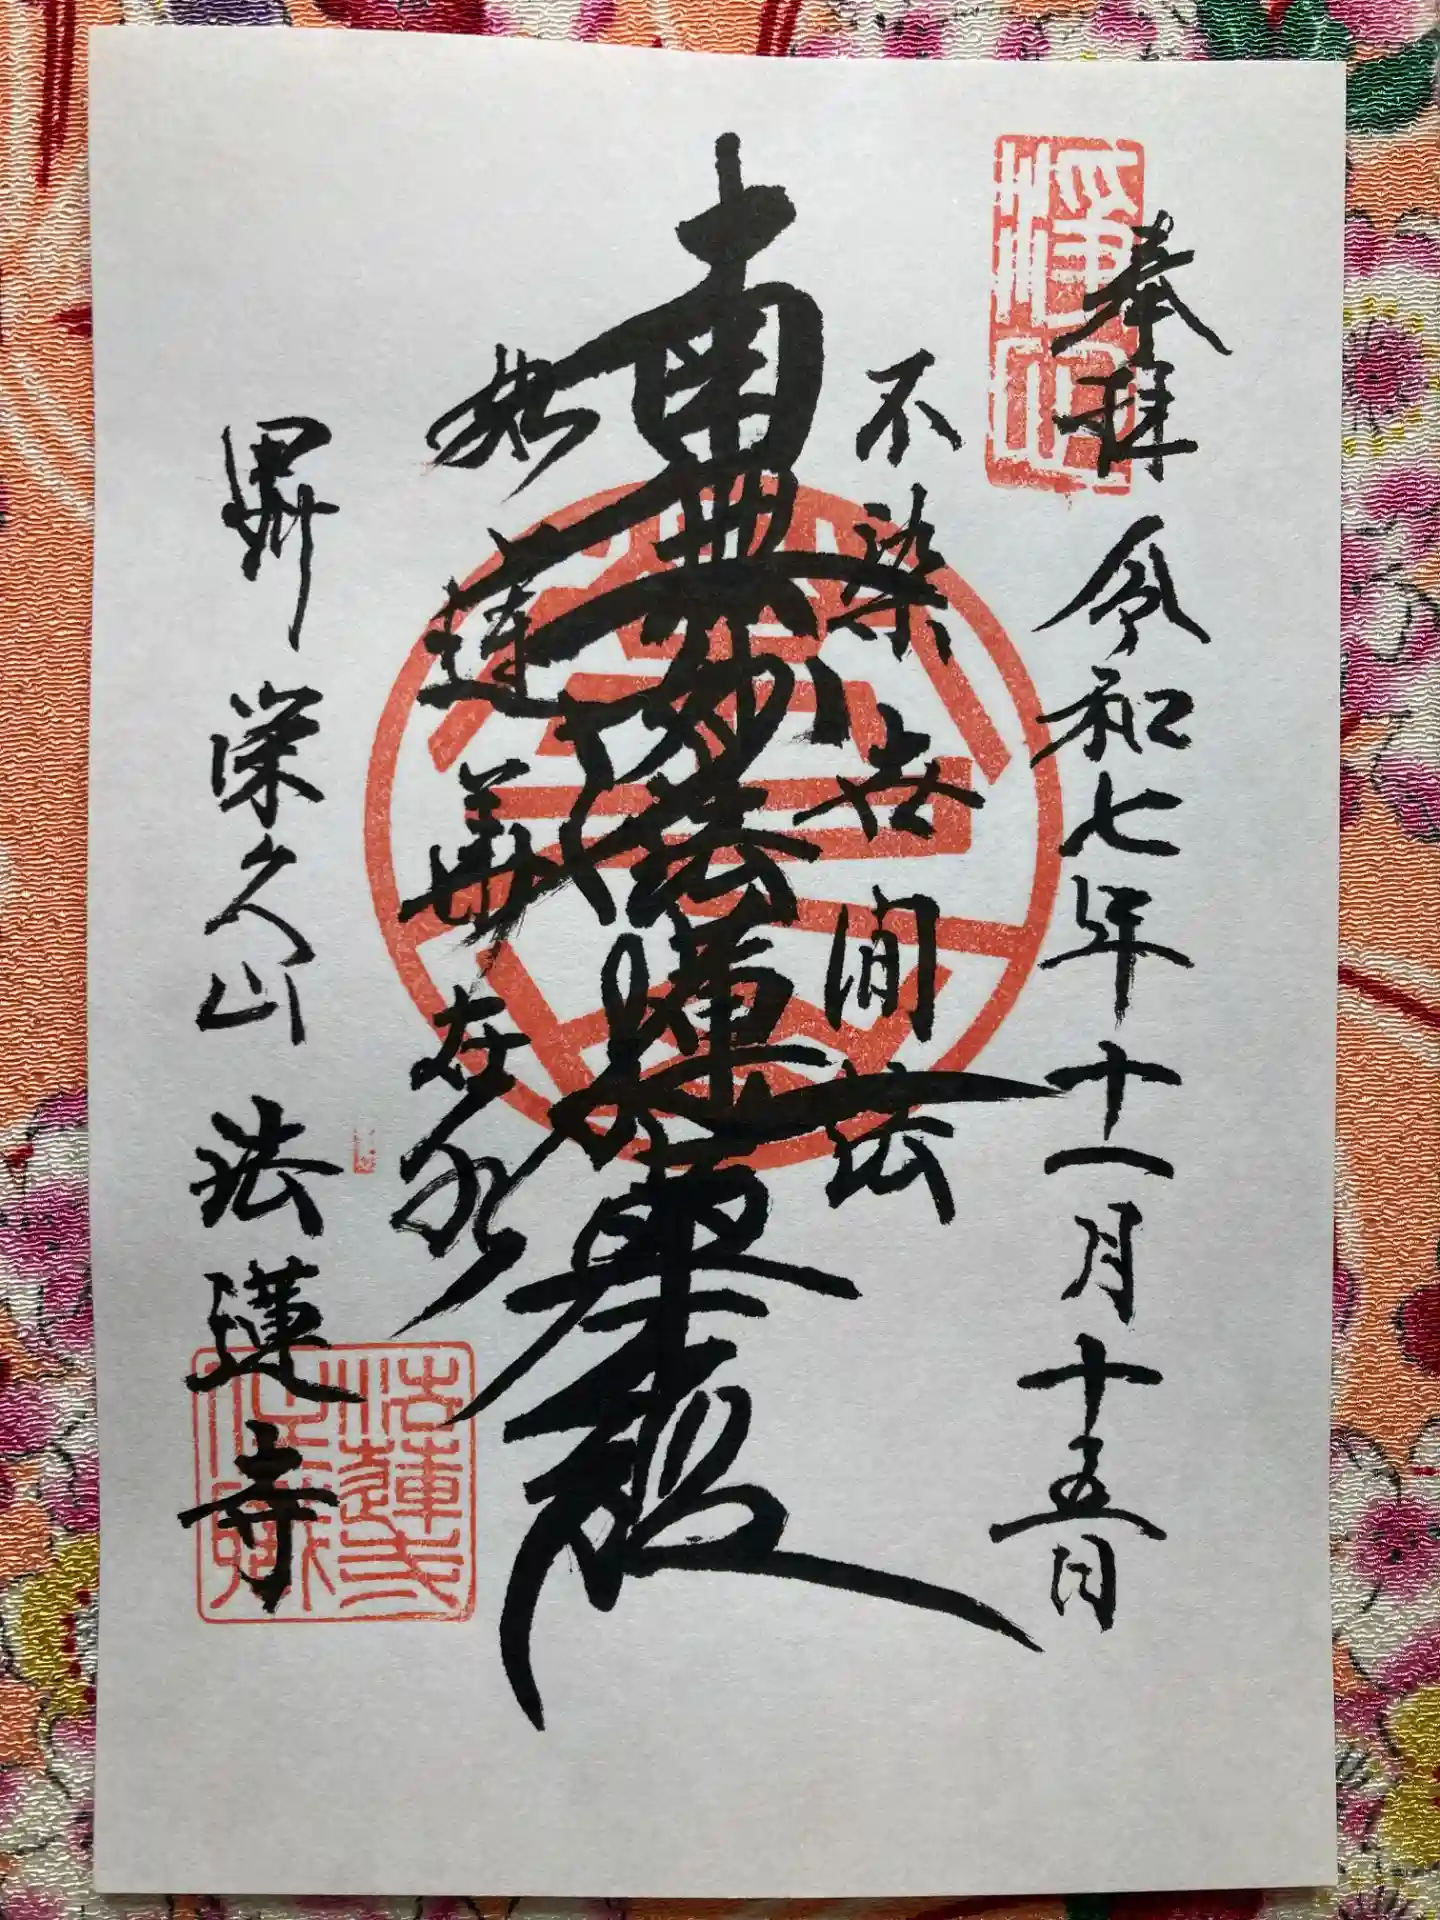 奉拝 令和七年十一月十五日
不染世間法
南無妙法蓮華経
如蓮華在水
甲州 栄久山 法蓮寺
浄心